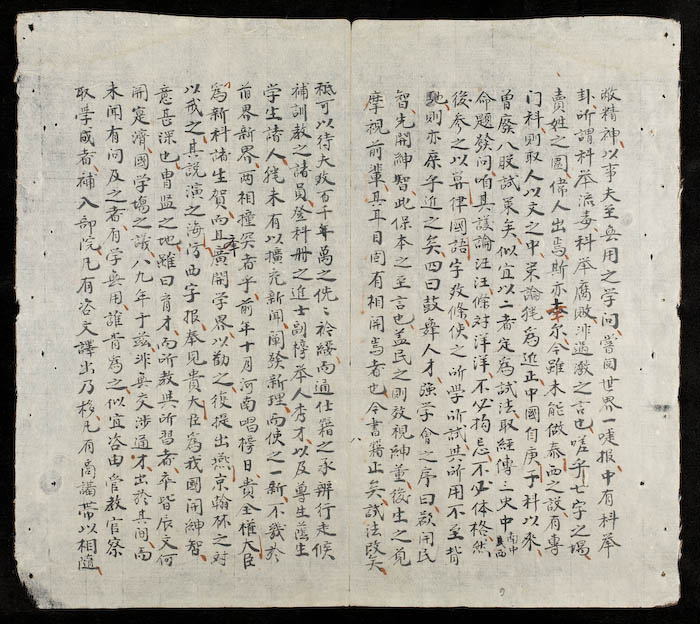 敝精神以事夫至無用之学問、嘗閱世界一嘜报中有科举
卦、所謂科举流毒、科举腐敗、非過激之言也嗟乎七字之場
賣姓之圈偉人出焉斯亦幸尔今雖未能做泰西之設有專
門科、則取人以文之中、英論猶為近正中國自庚子科以來
曾廢八股試策矣、似宜以二者定為試法取經傳三史中南中
命題發問咱其議論汪汪條对洋洋不必拘忌不必体格然
後参之以算律國語字孜條使之所學所試與所用不至背
馳則亦庶乎近之矣四曰鼓舞人才強学會之序曰欲開民
智先開紳智此保本之至言也盖民之則效視紳董後生之觀
摩視前輩其耳目固有相開焉者也今書籍正矣試法改矣
祗可以待大政百千年萬之侁〻衿綬而通仕籍之承辨行走候
補訓教之諸員登科册之進士副榜举人秀才以及尊生蔭生
学生諸人猶未有以擴充新聞闡發新理而使之一新不幾於
旧界新界兩相撞突者乎前年十月河南唱榜日貴全權大臣
為新科諸生賀而且廣開学界以勸之後提出燕京翰林之对
以戒之其說演之海防西字报奉見貴大臣為我國開紳智
意甚深也胄監之地雖曰育才而所教與所習者率皆辰文何
開寔濟國学場之議八九年于茲非無交涉通才出於其間而
未聞有問及之者有字無用誰肯為之似宜咨由管教官察
取學成者補入部院凡有咨文譯出乃移凡有商議帶以相隨